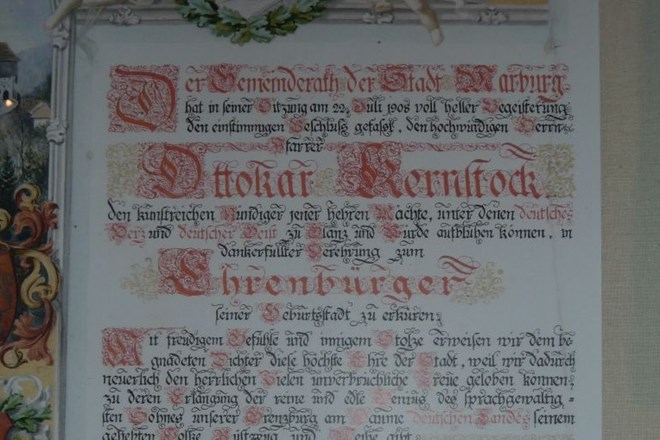 Der Gemeinderath der Stadt Marburg
hat in seiner Sitzung am 22. Juli 1908 voll heller Begeisterung
den einstimmigen Beschluß gefaßt, den hochwürdigen Herrn
Pfarrer
Ottokar Kernstock
den kunstreichen Kündiger jener hehren Mächte, unter denen deutsches
Herz und deutscher Geist zu Glanz und Würde aufblühen können, in
dankerfüllter Verehrung zum
Ehrenbürger
seiner Geburtsstadt zu erküren.
Mit freudigem Gefühle und innigem Stolze erweisen wir dem be-
gnadeten Dichter diese höchste Ehre der Stadt, weil wir dadurch
neuerlich den herrlichen Zielen unverbrüchliche Treue geloben können,
zu deren Erlangung der reine und edle Genius des sprachgewaltig-
sten Sohnes unserer Grenzburg am Saume deutschen Landes seinem
geliebten Volke Rüstzeug und Weihe gibt.